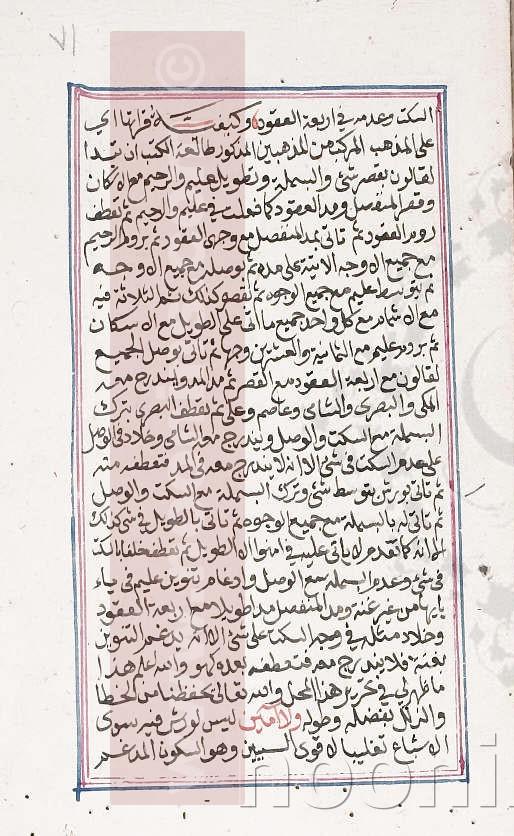 السكت وعدمه في اربعة العقود وكيفية قراءتها اي
على المذهب المركب من المذهبين المذكور طالعة الكتب ان تبدا
لقالون بقصر شئ والبسملة وتطويل عليم والرحيم مع الاسكان
وقصر المنفصل ومد العقود كما فعلت في عليم والرحيم ثم تقطف
روم العقود ثم تاتي بمد المنفصل مع وجهى العقود ثم بروم الرحيم
مع جميع الاوجه الاتية على مده ثم بوصله مع جميع الاوجه
ثم بتوسط عليم مع جميع الوجوه ثم بقصره كذلك ثم الثلاثة فيه
مع الاشمام مع كل واحد جميع ما اتى على الطويل مع الاسكان
ثم بروم عليم مع الثمانية والعشرين وجها ثم تاتي بوصل الجميع
لقالون مع اربعة العقود مع القصر ثم مد المد ويندرج معه
المكي والبصري والشامي وعاصم وعلى ثم تقطف البصري بترك
البسملة مع السكت والوصل ويندرج معه الشامي وخلاد في الوصل
على عدم السكت في شئ الا انه لا يندرج معه في المد فتعطفه منه
ثم تاتي لورش بتوسط شئ وترك البسملة مع السكت والوصل
ثم تاتي له بالبسملة مع جميع الوجوه ثم تاتي بالطويل في شئ كذلك
الا انه كما تقدم لا ياتي عليه في امنوا الا الطويل ثم تقطف خلفا بالسكت
في شئ وعدم البسملة مع الوصل وادغام تنوين عليم في ياء
يايها من غير غنة ومد المنفصل مدا طويلا مع اربعة العقود
وخلاد مثله في وجه السكت على شئ الا انه يدغم التنوين
بغنة فلا يندرج معه فتعطفه بعده كهو والله اعلم هذا
ما ظهر لي في تحرير هذا المحل والله تعالى يحفظنا من الخطا
والزلل بفضله وطوله ولا آمين ليس لورش فيه سوى
الاشباع تغليبا لاقوى السببين وهو السكون المدغم
nooni